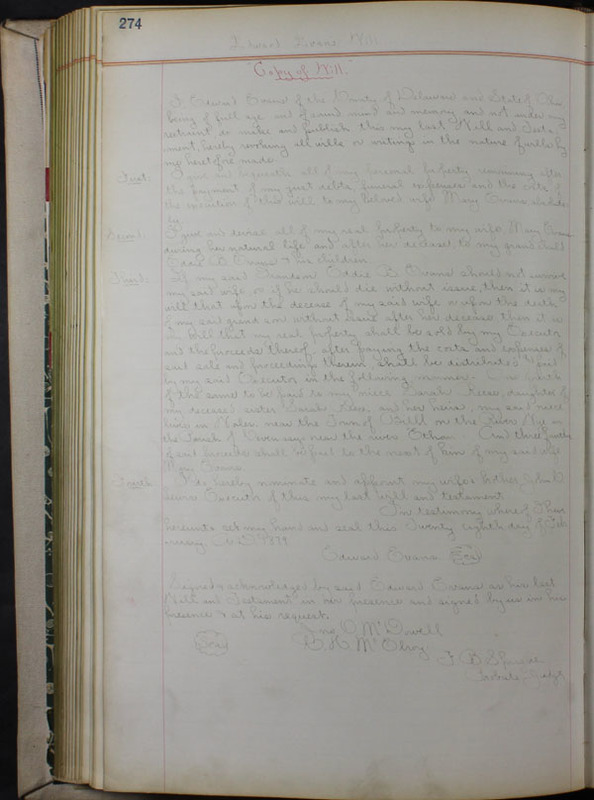 274
Edward Evans Will
Copy of Will.
I, Edward Evans of the County of Delaware and State of Ohio
being of full age and of sound mind and memory and not under any
restraint do make and publish this my last Will and Testa-
ment, hereby revoking all wills or writings in the nature of wills by
me heretofore made.
First. I give and bequeath all of my personal property remaining after
the payment of my just debts, funeral expenses and the costs of
the execution of this will to my beloved wife Mary Evans
Second. I give and devise all of my real property to my wife, Mary Evans
during her natural life and after her decease, to my grand child
Eddie B. Evans & his children
Third. If my said Grandson Eddie B. Evans should not survive
my said wife, or if he should die without issue, then it is my
will that upon the decease of my said wife or upon the death
of my said grand son without issue after her decease then it is
my will that my real property shall be sold by my Executor
and the proceeds thereof after paying the costs and expenses of
said sale and proceedings therein, shall be distributed
by my said Executor in the following manner.
of the same to be paid to my niece Sarah Reese, daughter of
my deceased sister Sarah Reese, and her heirs, my said niece
lives in Wales near the Town of on the River Wye in
the Parish of near the river And three fourths
of said proceeds shall be paid to the next of kin of my said wife
Mary Evans.
Fourth. I do hereby nominate and appoint my wife's brother
Executor of this my last Will and testament
In testimony whereof I have
hereunto set my hand and seal this Twenty eighth day of Feb
ruary, A.D. 1879
Edward Evans Seal
Signed & acknowledged by said Edward Evans as his last
Will and Testament in our presence and signed by us in his
presence & at his request.
Jno. O. McDowell
Seal
McElroy
F. B. Sprague
Probate Judge